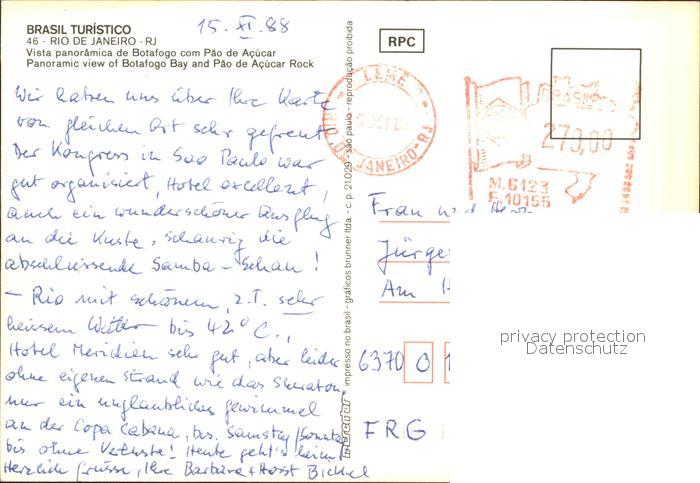 BRASIL TURÍSTICO
46 - RIO DE JANEIRO - RJ
Vista panorâmica de Botafogo com Pão de Açúcar
Panoramic view of Botafogo Bay and Pão de Açúcar Rock
15. XI. 88
Wir haben uns über Ihre Karte
von gleichen Ort sehr gefreut.
Der Kongress in Sao Paulo war
gut organisiert, Hotel excellent,
auch ein wunderschöner Ausflug
an die Küste, schaurig die
abschliessende Samba-Schau!
- Rio mit schönem, z.T. sehr
heissem Wetter bis 42° C.,
Hotel Meridien sehr gut, aber leider
ohne eigenen Strand wie das Sheraton
nur ein unglaubliches Gewimmel
an der Copa Cabana, bes. Samstag/Sonntag
bis ohne Verluste! Heute geht's heim!
Herzliche Grüsse, Ihre Barbara + Horst
mercator ® impresso no brasil - gráficos brunner ltda. - c.p. 21.029 - são paulo - reprodução proibida
RPC
LEME
JANEIRO-RJ
BRASIL
270,00
M.6123
F.10155
Frau und
Jürge
Am H
6370 O
FRG
privacy protection
Datenschutz